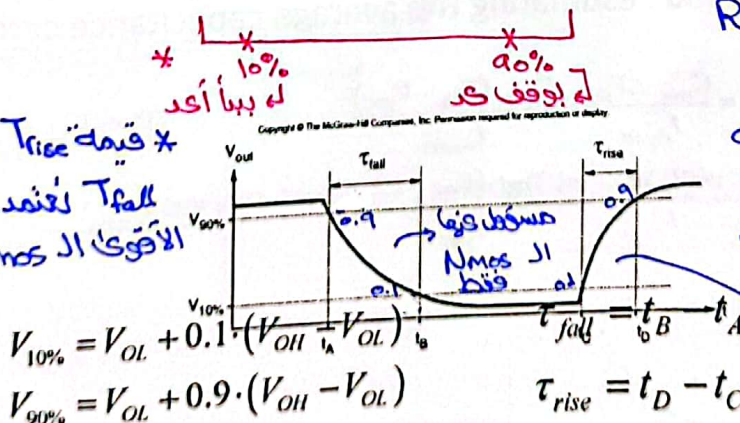 R
* 10% 90%
له يبدأ أعد له بوقف عد
Copyright © The McGraw-Hill Companies, Inc. Permission required for reproduction or display.
* قيمة "Trise"
Tfall تعتمد
الأقوى ال
mos
Vout τfall τrise
V90% 0.9 0.9
مسؤول عنها
ال Nmos
فقط
V10% 0.1 0.1
tA tB tD
V10% = VOL + 0.1·(VOH − VOL) τfall = tB − tA
V90% = VOL + 0.9·(VOH − VOL) τrise = tD − tC